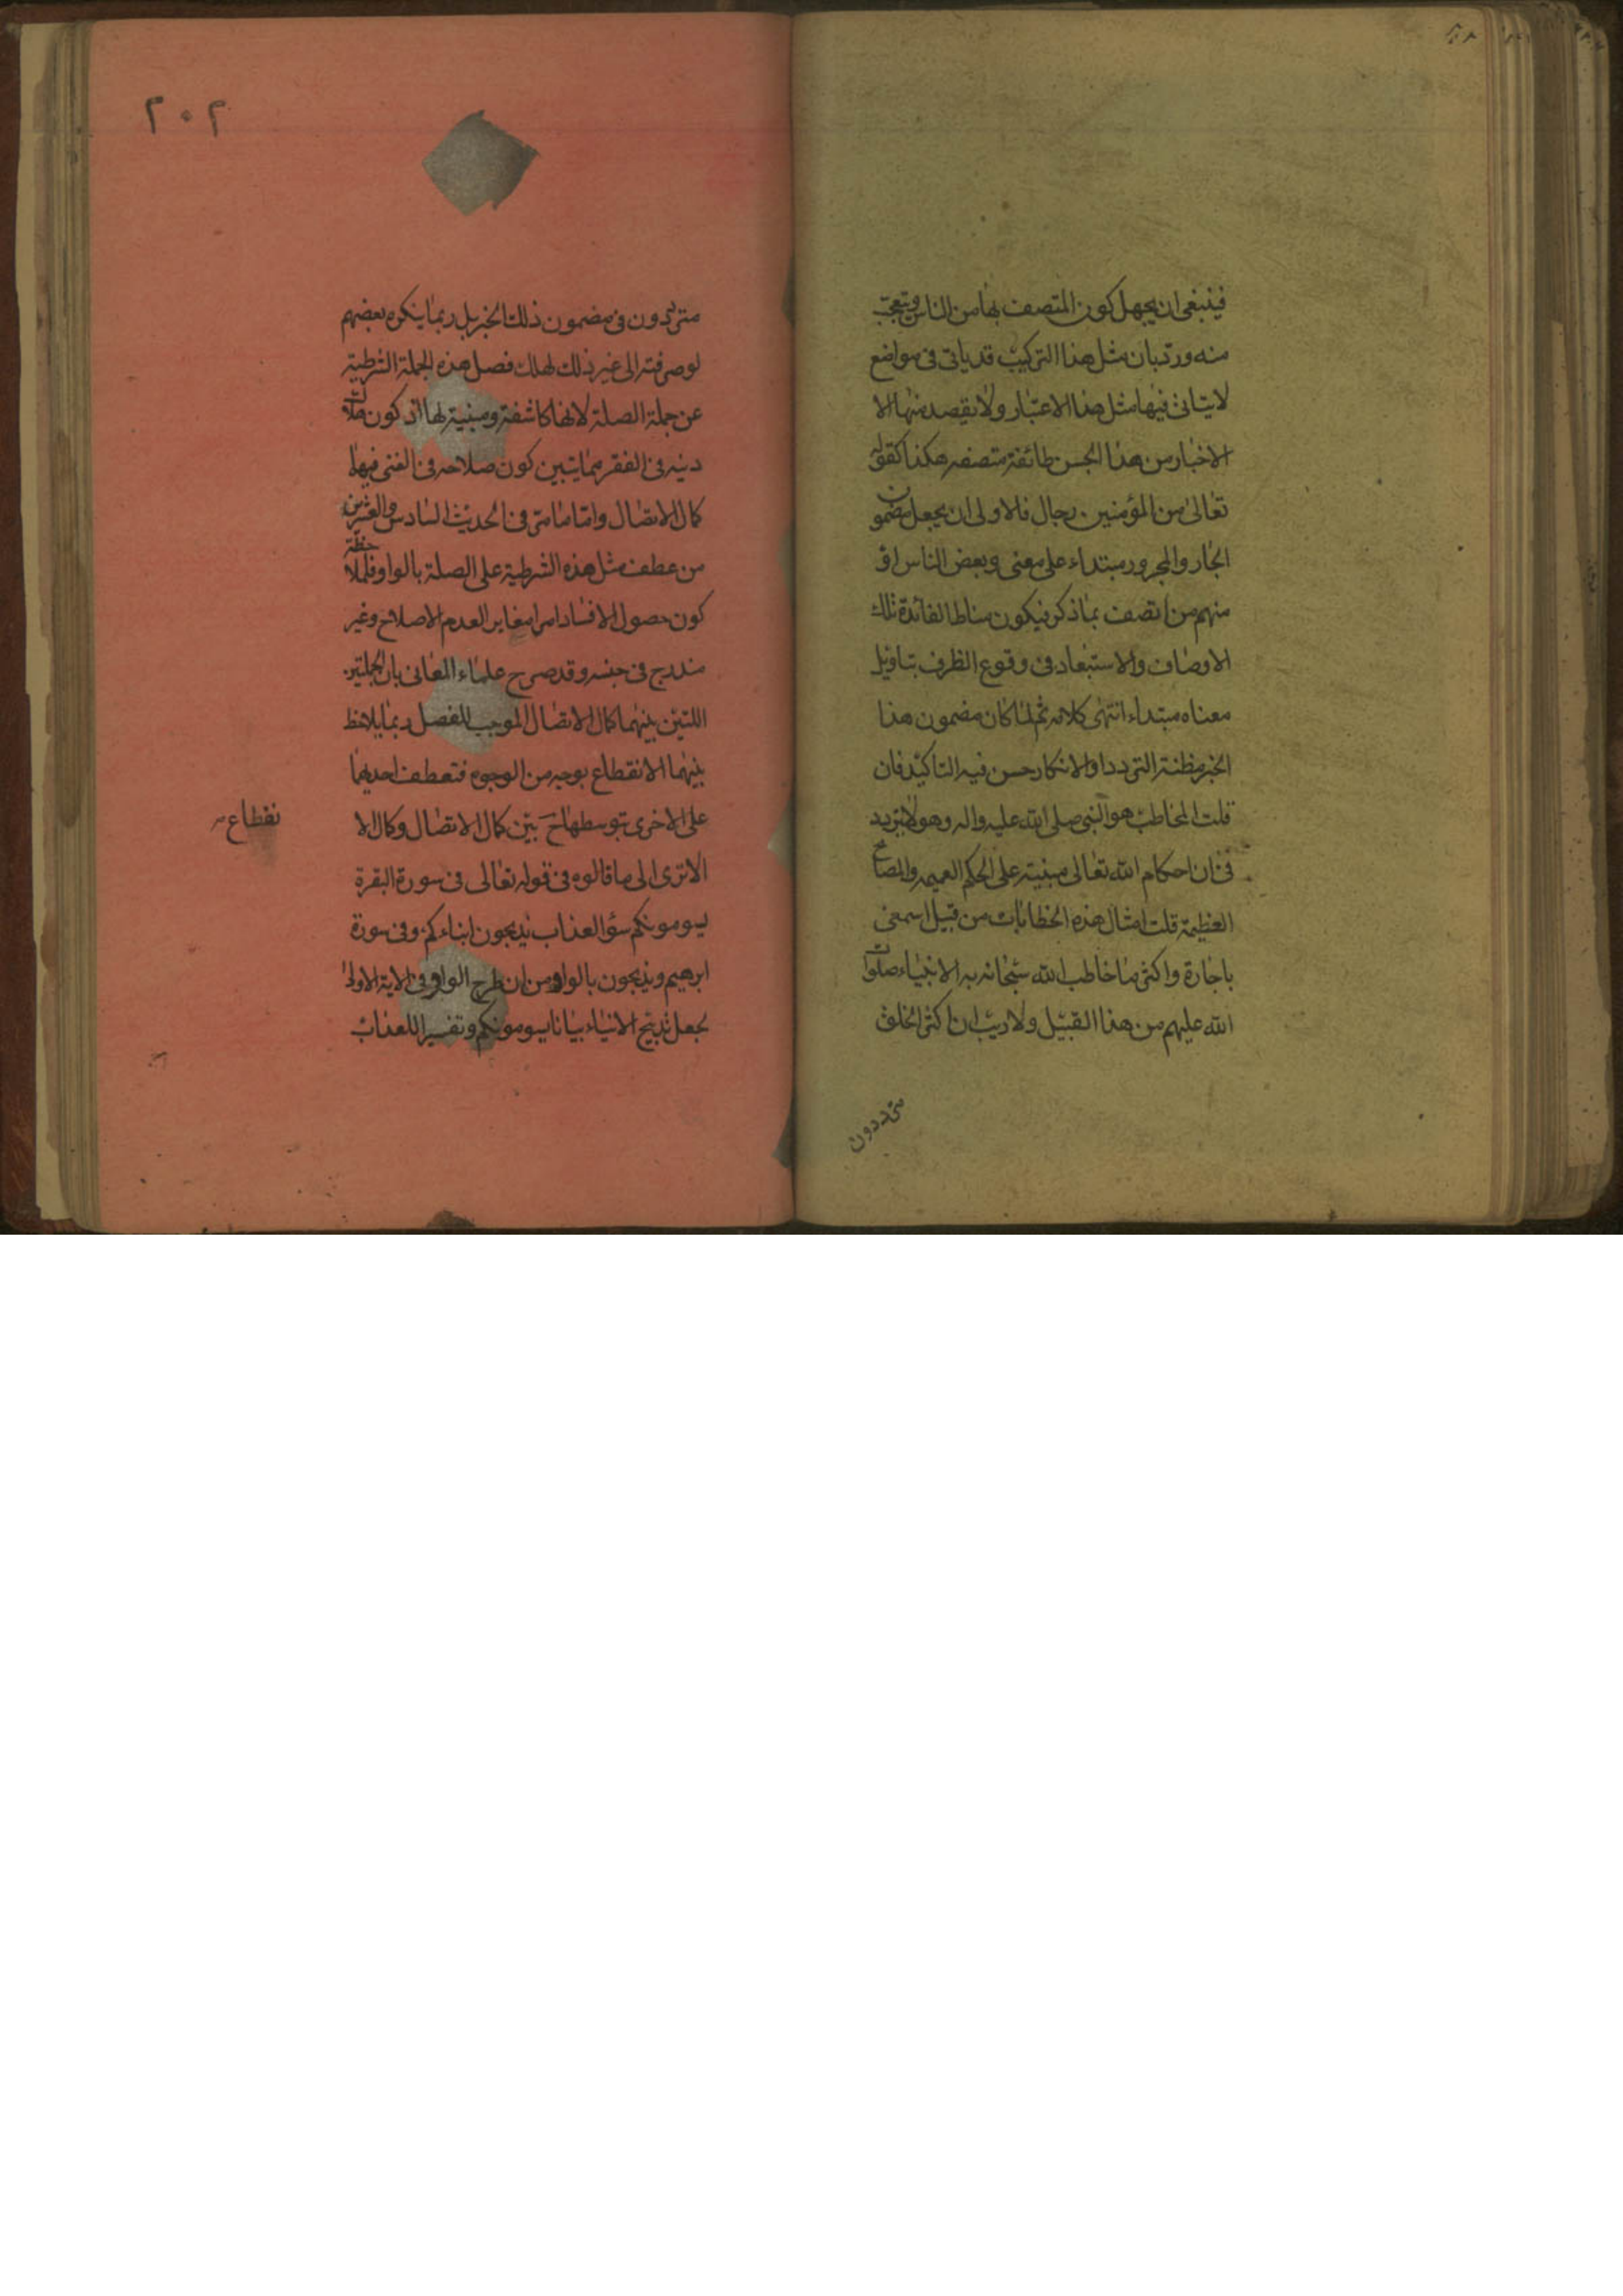 فينبغى ان يجهل كون المتصف بها من الناس ويتعجب
منه ورد بان مثل هذا التركيب قد ياتى فى مواضع
لا يتاتى فيها مثل هذا الاعتبار ولا يقصد منها الا
الاخبار من هذا الجنس طائفة متصفه هكذا كقوله
تعالى من المؤمنين رجال فالاولى ان يجعل مضمون
الجار والمجرور مبتداء على معنى وبعض الناس او
منهم من اتصف بما ذكر فيكون مناط الفائدة تلك
الاوصاف والاستبعاد فى وقوع الظرف بتاويل
معناه مبتداء انتهى كلامه ثم لما كان مضمون هذا
الخبر مظنة التردد او الانكار حسن فيه التاكيد فان
قلت المخاطب هو النبى صلى الله عليه واله وهو لا يتردد
فى ان احكام الله تعالى مبنية على الحكم العميمه والمصالح
العظيمة قلت امثال هذه الخطابات من قبيل اسمعى
يا جارة واكثر ما خاطب الله سبحانه به الانبياء صلوات
الله عليهم من هذا القبيل ولا ريب ان اكثر الخلق
مترددون
٢٠٢
مترددون فى مضمون ذلك الخبر بل ربما ينكره بعضهم
لو صرفته الى غير ذلك لهلك فصل هذه الجملة الشرطية
عن جملة الصلة لانها كاشفة ومبنية لها اذ كون هلاك
دينه فى الفقر مما يبين كون صلاحه فى الغنى فبينهما
كمال الاتصال واما ما مر فى الحديث السادس والعشرين
من عطف مثل هذه الشرطية على الصلة بالواو فلملاحظة
كون حصول الافساد امرا مغاير العدم الاصلاح وغير
مندرج فى جنسه وقد صرح علماء المعانى بان الجملتين
اللتين بينهما كمال الاتصال الموجب للفصل ربما يلاحظ
بينهما الانقطاع بوجه من الوجوه فتعطف احديهما
على الاخرى بتوسطها ح بين كمال الاتصال وكمال الا
نقطاع
الا ترى الى ما قالوه فى قوله تعالى فى سورة البقرة
يسومونكم سؤ العذاب يذبحون ابناءكم وفى سورة
ابرهيم ويذبحون بالواو من ان طرح الواو فى الاية الاولى
لجعل تذبيح الابناء بيانا ليسومونكم وتفسيرا للعذاب